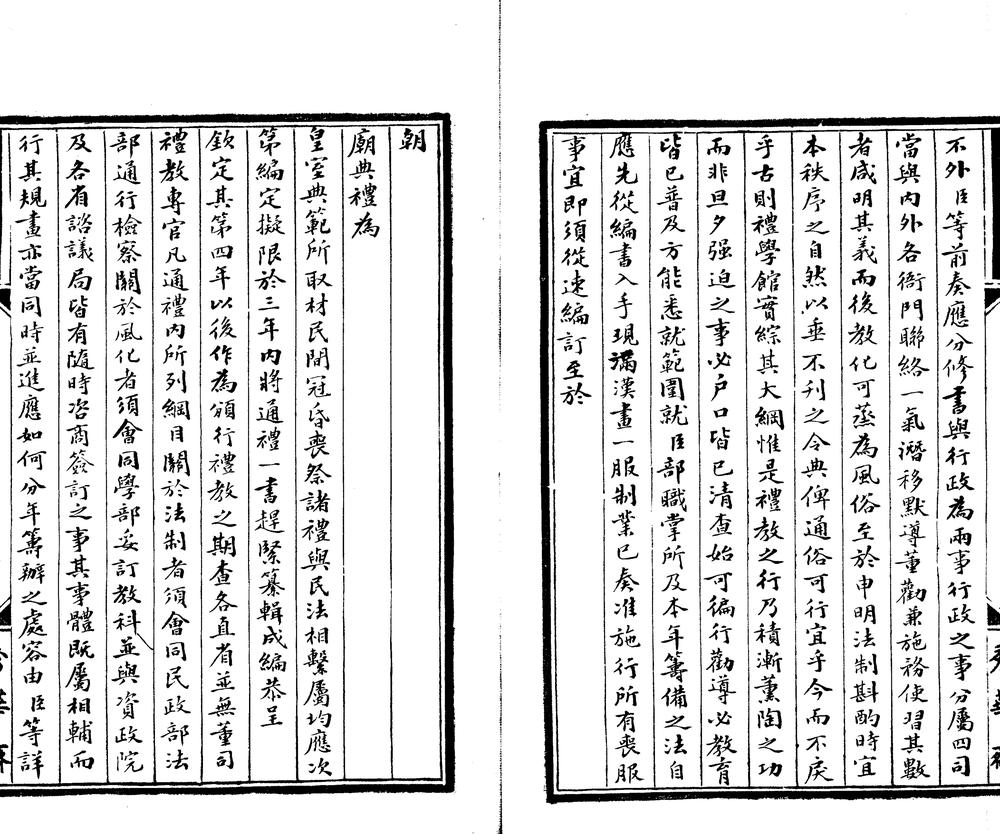 不外臣等前奏應分修書與行政為兩事行政之事分屬四司
當與內外各衙門聯絡一氣潛移默導董勸兼施務使習其數
者咸明其義而後教化可蒸為風俗至於申明法制斟酌時宜
本秩序之自然以垂不刊之令典俾通俗可行宜乎今而不戾
乎古則禮學館實綜其大綱惟是禮教之行乃積漸薰陶之功
而非旦夕强迫之事必户口皆已清查始可徧行勸導必教育
皆已普及方能悉就範圍就臣部職掌所及本年籌備之法自
應先從編書入手現滿漢畫一服制業已奏准施行所有喪服
事宜即須從速編訂至於
朝
廟典禮為
皇室典範所取材民間冠昏喪祭諸禮與民法相繫屬均應次
第編定擬限於三年內將通禮一書趕緊纂輯成編恭呈
欽定其第四年以後作為頒行禮教之期查各直省並無董司
禮教專官凡通禮內所列綱目關於法制者須會同民政部法
部通行檢察關於風化者須會同學部妥訂教科並與資政院
及各省諮議局皆有隨時咨商簽訂之事其事體既屬相輔而
行其規畫亦當同時並進應如何分年籌辦之處容由臣等詳